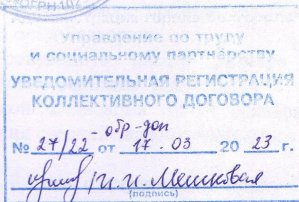 ОГРН 102
Управление по труду
и социальному партнерству
УВЕДОМИТЕЛЬНАЯ РЕГИСТРАЦИЯ
КОЛЛЕКТИВНОГО ДОГОВОРА
№ 27/22-обр-доп от 17.03 2023 г.
И.И. Мешковая
(подпись)